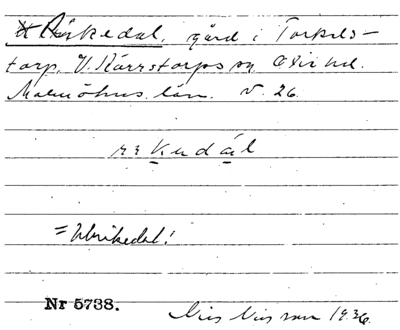 Rirkedal, gård i Torkels-
torp, V. Kärrstorps sn, Oxie hd.
Malmöhus län. V. 26.
= Ulrikedal!
Nr 5738. Nils Nilsson 1936.